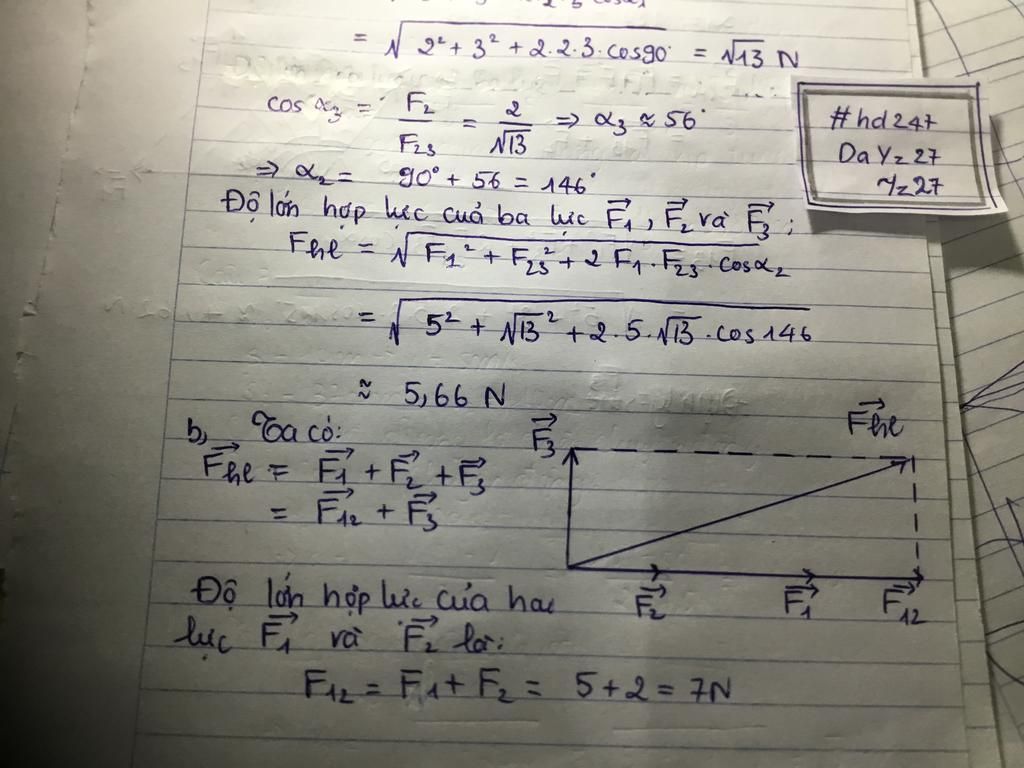 = √2² + 3² + 2.2.3.cos90° = √13 N
cos α₃ = F₂/F₂₃ = 2/√13 => α₃ ≈ 56°
=> α₂ = 90° + 56 = 146°
Độ lớn hợp lực cuả ba lực F₁, F₂ và F₃;
Fhl = √F₁² + F₂₃² + 2 F₁.F₂₃.cosα₂
= √5² + √13² + 2.5.√13.cos146
≈ 5,66 N
b, Ta có:
Fhl = F₁ + F₂ + F₃
= F₁₂ + F₃
Độ lớn hợp lực của hai
lực F₁ và F₂ là:
F₁₂ = F₁ + F₂ = 5 + 2 = 7N
F₃
Fhl
F₂
F₁
F₁₂
#hd247
Day=27